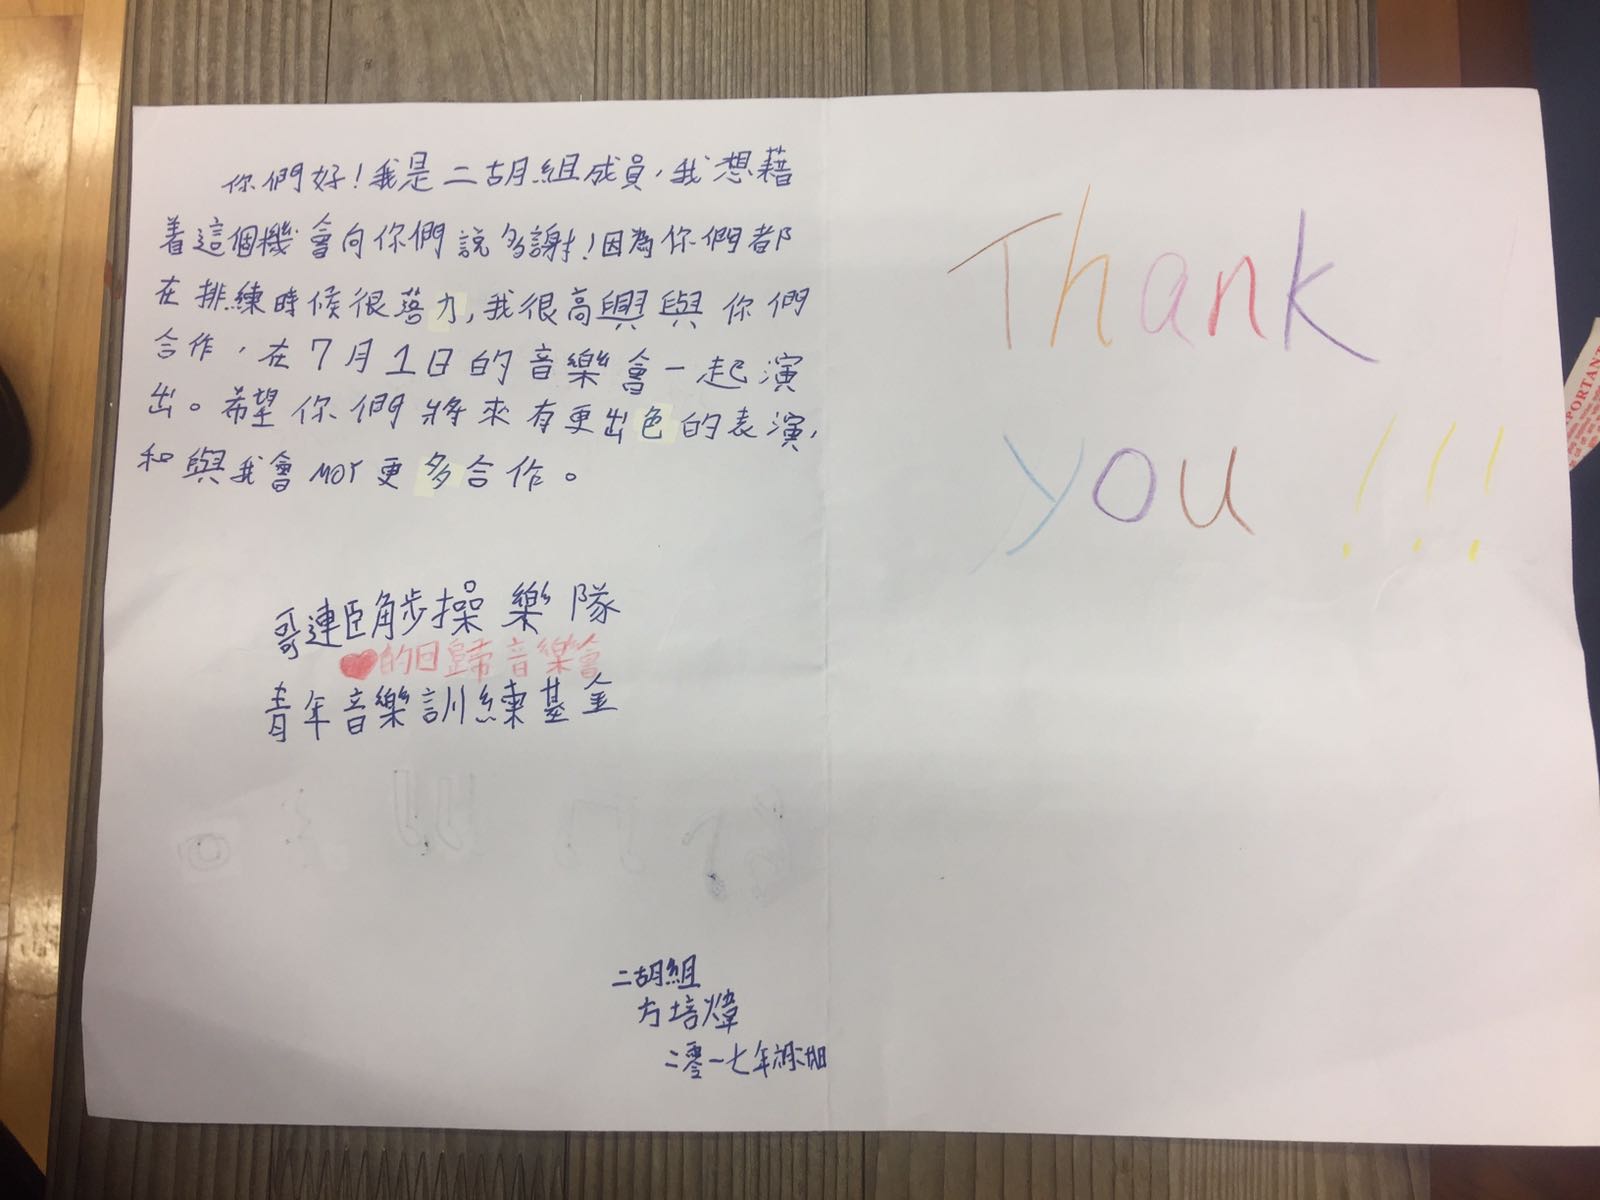 你們好！我是二胡組成員，我想藉
着這個機會向你們說多謝！因為你們都
在排練時候很落力，我很高興與你們
合作，在7月1日的音樂會一起演
出。希望你們將來有更出色的表演，
和與我會MOY更多合作。
哥連臣觸步操樂隊
的回歸音樂會
青年音樂訓練基金
二胡組
方培煒
二零一七年
Thank
you!!!
PORTANT